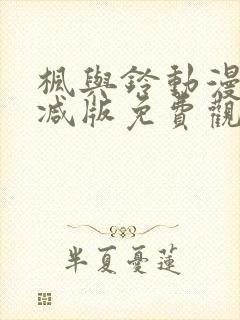 楓與鈴動漫
減版免費觀
半夏憂蓮